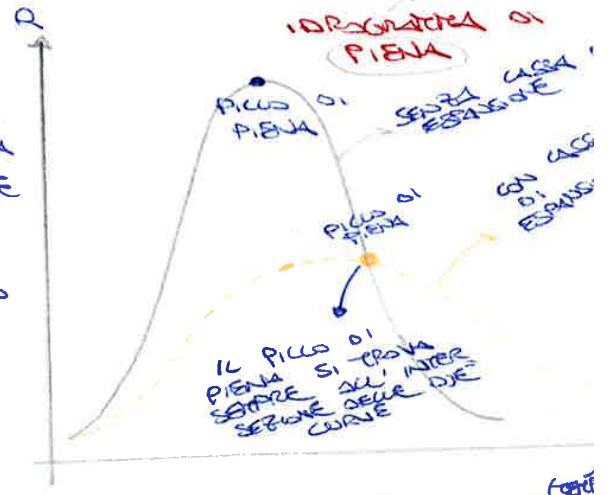 Q
IDROGRAMMA DI
PIENA
PICCO DI
PIENA
SENZA CASSA
ESPANSIONE
CON CASSA
DI
ESPANSI
PICCO DI
PIENA
IL PICCO DI
PIENA SI TROVA
SEMPRE ALL'INTER
SEZIONE DELLE DUE
CURVE